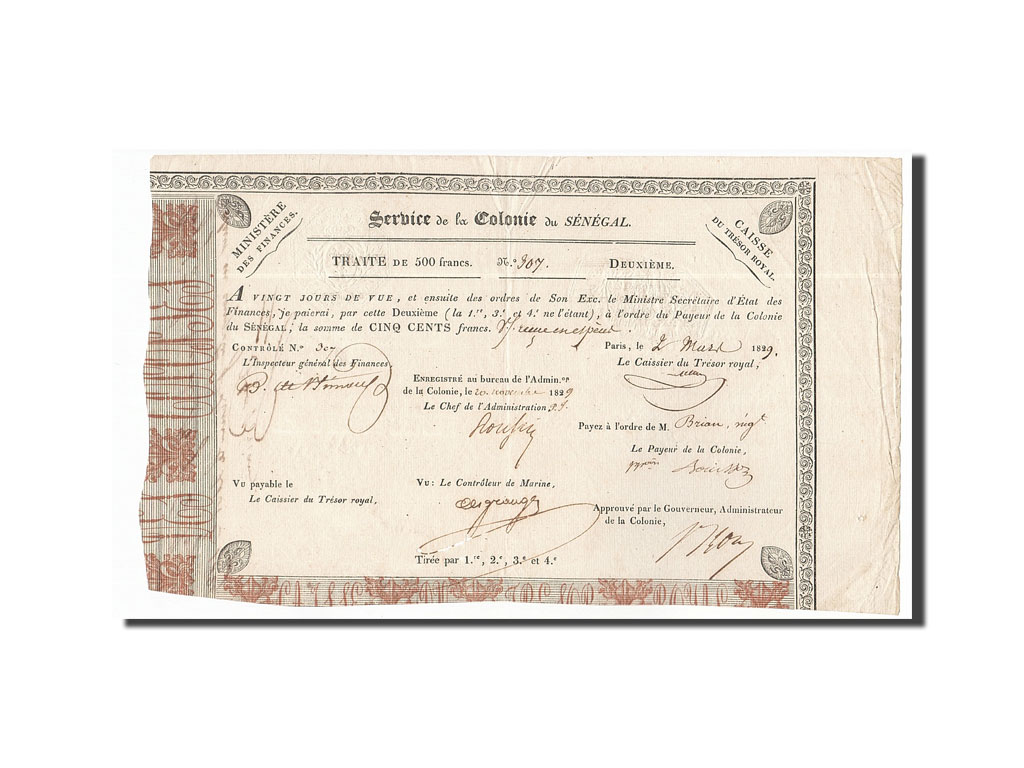 MINISTÈRE
DES FINANCES.
Service de la Colonie du SÉNÉGAL.
CAISSE
DU TRÉSOR ROYAL.
TRAITE DE 500 francs. N.º 307. DEUXIÈME.
A VINGT JOURS DE VUE, et ensuite des ordres de Son Exc. le Ministre Secrétaire d'État des
Finances, je paierai, par cette Deuxième (la 1.re, 3.e et 4.e ne l'étant), à l'ordre du Payeur de la Colonie
du SÉNÉGAL, la somme de CINQ CENTS francs.
CONTRÔLÉ N.º 307
Paris, le 2 Mars 1829.
L'Inspecteur général des Finances
Le Caissier du Trésor royal,
ENREGISTRÉ au bureau de l'Admin.on
de la Colonie, le 20 novembre 1829
Le Chef de l'Administration,
Payez à l'ordre de M. Brian, nég.t
Le Payeur de la Colonie,
VU payable le
VU : Le Contrôleur de Marine,
Le Caissier du Trésor royal,
Approuvé par le Gouverneur, Administrateur
de la Colonie,
Tirée par 1.re, 2.e, 3.e et 4.e